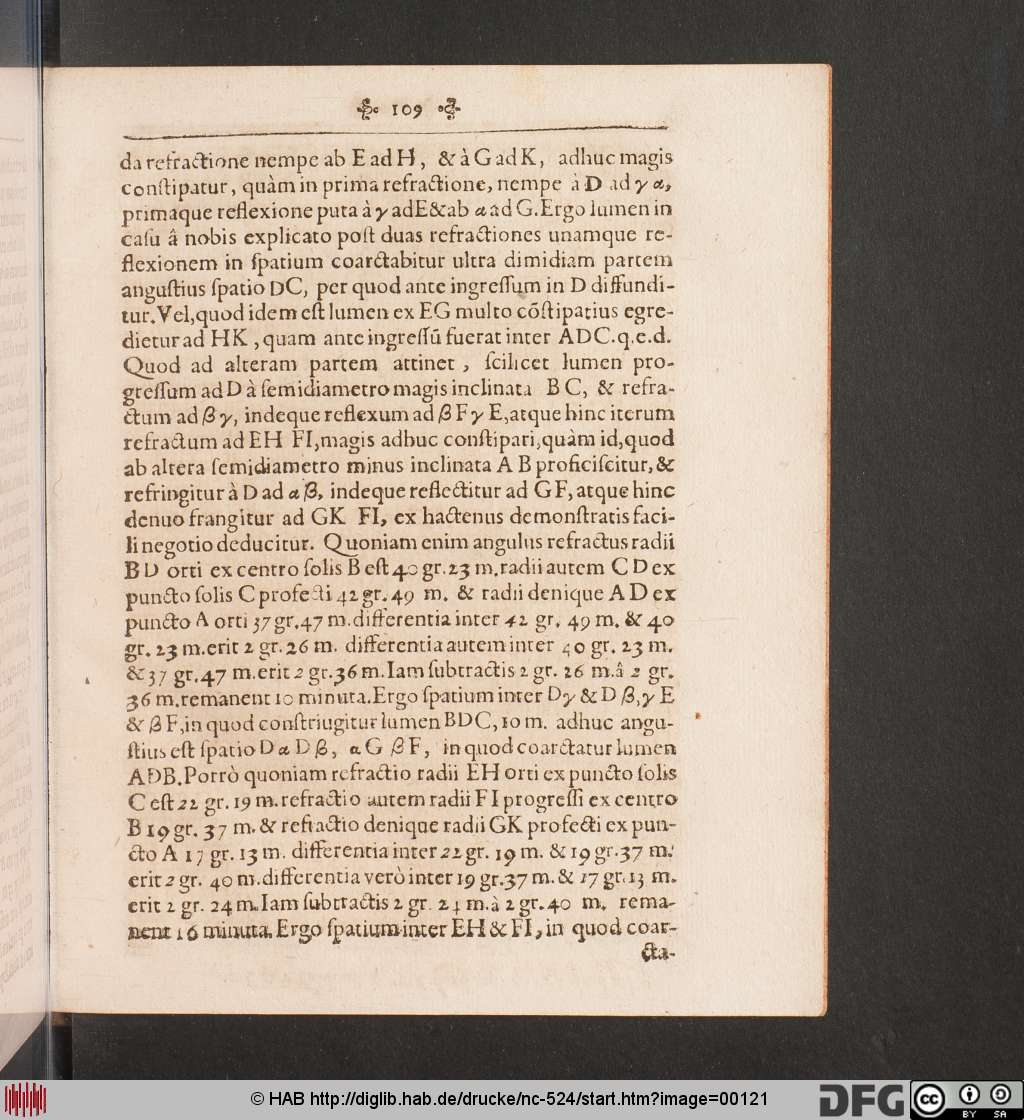 109
da refractione nempe ab E ad H, & à G ad K, adhuc magis
conſtipatur, quàm in prima refractione, nempe à D ad γ α,
primaque reflexione puta à γ adE&ab α ad G.Ergo lumen in
caſu â nobis explicato poſt duas refractiones unamque re-
flexionem in ſpatium coarctabitur ultra dimidiam partem
anguſtius ſpatio DC, per quod ante ingreſſum in D diffundi-
tur. Vel, quod idem eſt lumen ex EG multo cõſtipatius egre-
dietur ad HK, quam ante ingreſſũ fuerat inter ADC.q.e.d.
Quod ad alteram partem attinet, ſcilicet lumen pro-
greſſum ad D à ſemidiametro magis inclinata BC, & refra-
ctum ad β γ, indeque reflexum ad β F γ E, atque hinc iterum
refractum ad EH FI, magis adhuc conſtipari, quàm id, quod
ab altera ſemidiametro minus inclinata A B proficiſcitur, &
refringitur à D ad α β, indeque reflectitur ad GF, atque hinc
denuo frangitur ad GK FI, ex hactenus demonſtratis faci-
li negotio deducitur. Quoniam enim angulus refractus radii
BD orti ex centro ſolis B eſt 40 gr. 23 m. radii autem C D ex
puncto ſolis C profecti 42 gr. 49 m. & radii denique A D ex
puncto A orti 37 gr. 47 m. differentia inter 42 gr. 49 m. & 40
gr. 23 m. erit 2 gr. 26 m. differentia autem inter 40 gr. 23 m.
& 37 gr. 47 m. erit 2 gr. 36 m. Iam ſubtractis 2 gr. 26 m. â 2 gr.
36 m. remanent 10 minuta. Ergo ſpatium inter Dγ & D β, γ E
& β F, in quod conſtriugitur lumen BDC, 10 m. adhuc angu-
ſtius eſt ſpatio D α D β, α G β F, in quod coarctatur lumen
ADB. Porrò quoniam refractio radii EH orti ex puncto ſolis
C eſt 22 gr. 19 m. refractio autem radii FI progreſſi ex centro
B 19 gr. 37 m. & refractio denique radii GK profecti ex pun-
cto A 17 gr. 13 m. differentia inter 22 gr. 19 m. & 19 gr. 37 m.
erit 2 gr. 40 m. differentia verò inter 19 gr. 37 m. & 17 gr. 13 m.
erit 2 gr. 24 m. Iam ſubtractis 2 gr. 24 m. à 2 gr. 40 m. rema-
nent 16 minuta. Ergo ſpatium inter EH & FI, in quod coar-
cta-
© HAB http://diglib.hab.de/drucke/nc-524/start.htm?image=00121
DFG
cc BY SA